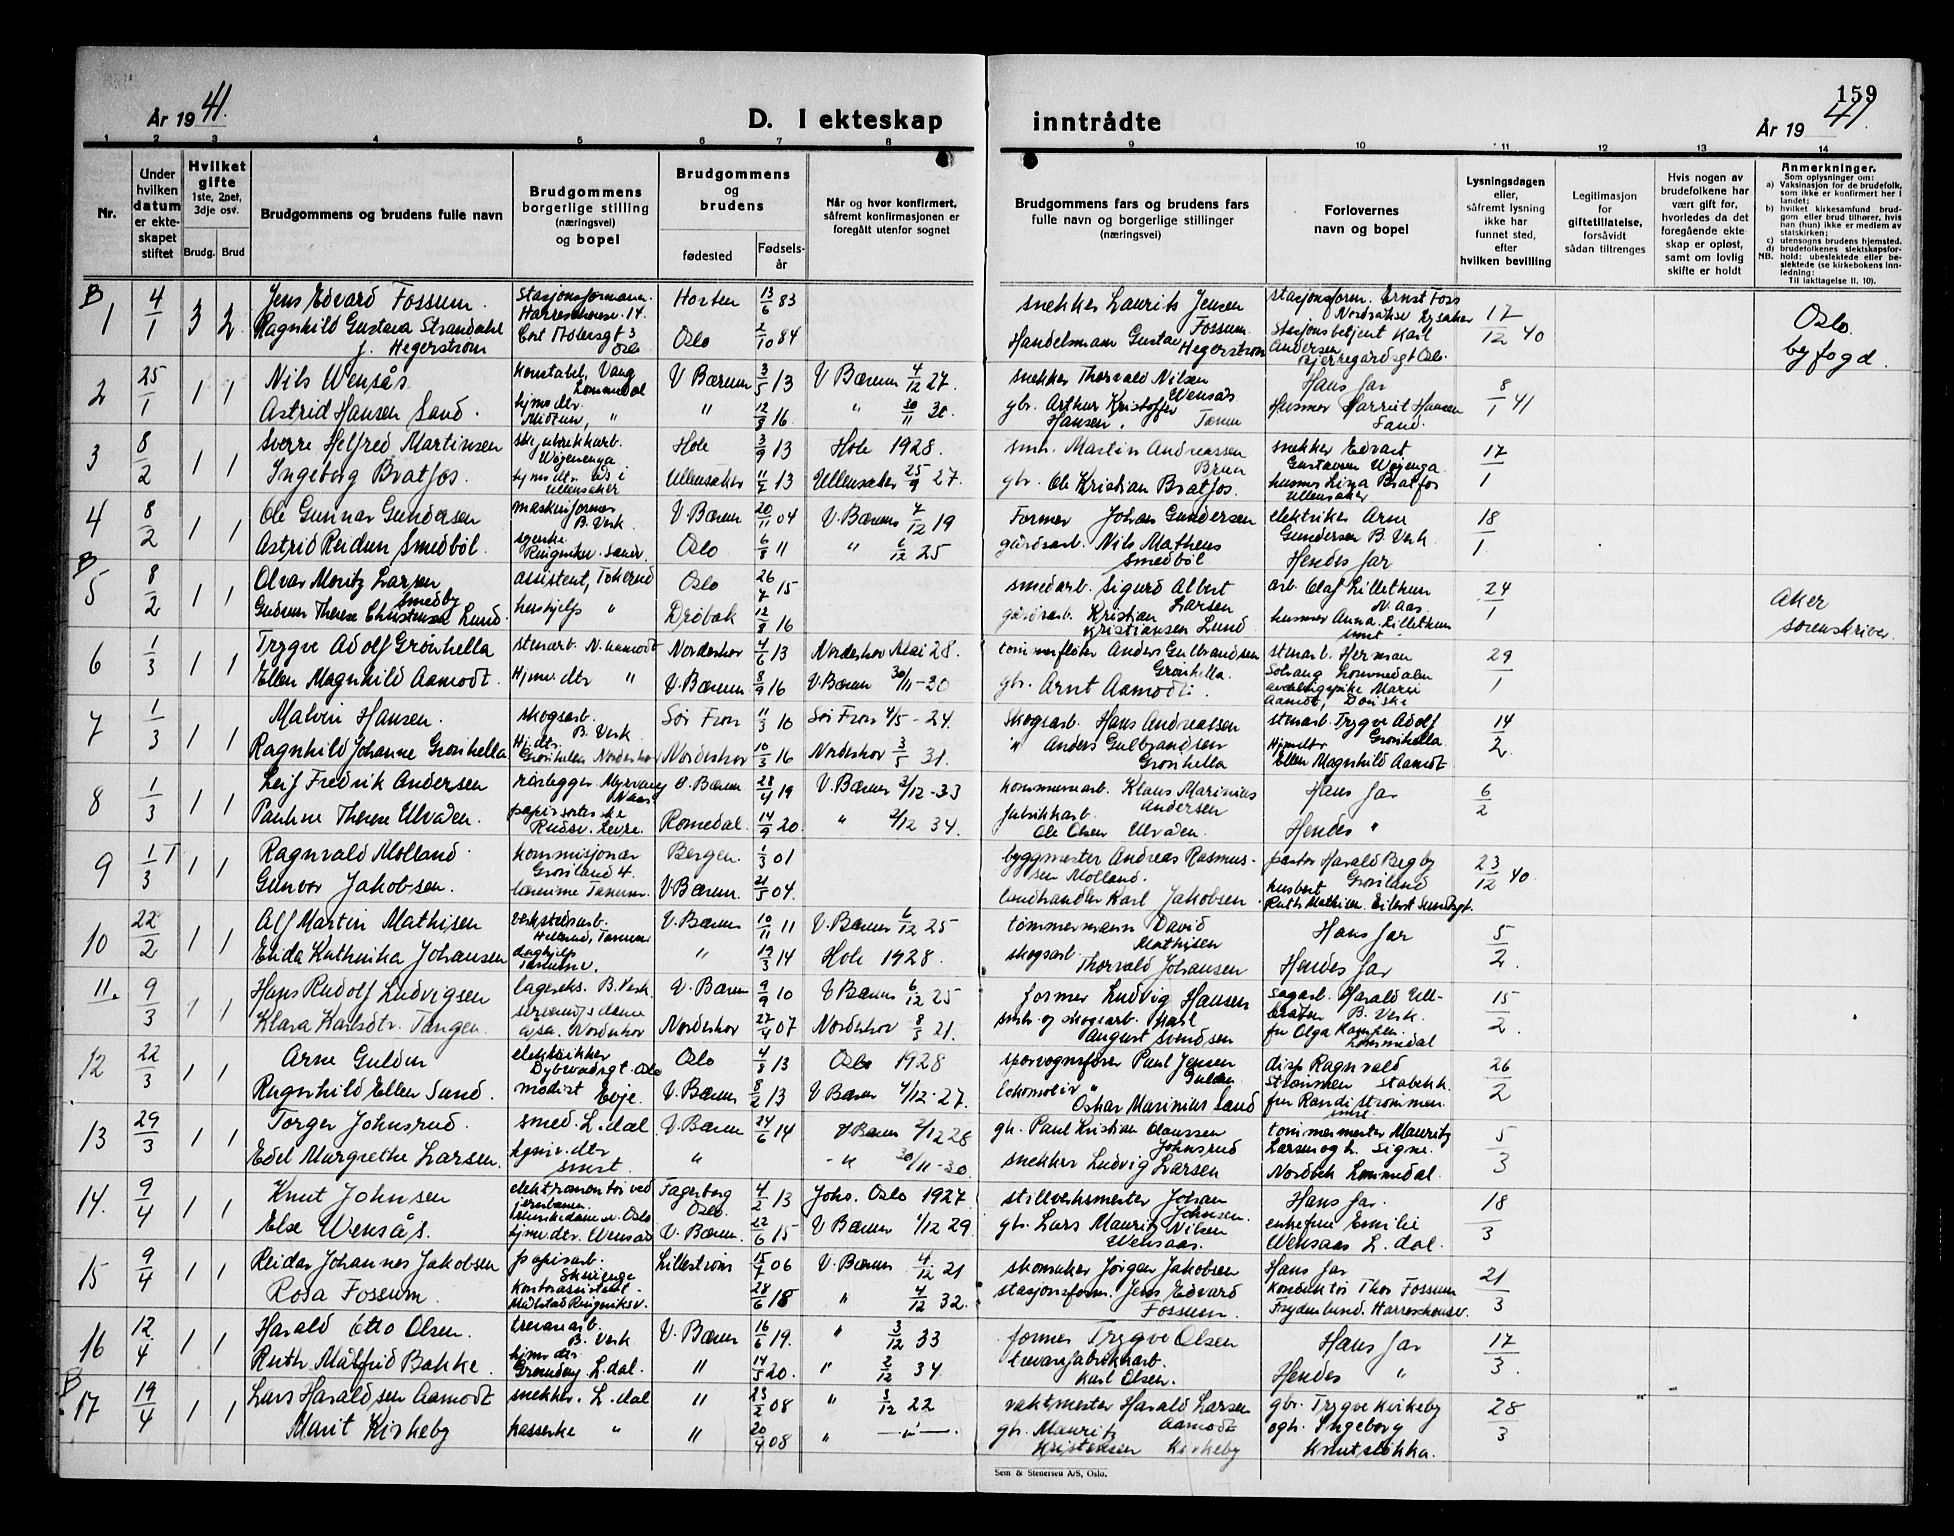 159
År 1941.
D. I ekteskap inntrådte
År 1941.
1 2 3 4 5 6 7 8 9 10 11 12 13 14
Nr.
Under hvilken datum er ekteskapet stiftet
Hvilket gifte 1ste, 2net, 3dje osv.
Brudg. Brud
Brudgommens og brudens fulle navn
Brudgommens borgerlige stilling (næringsvei) og bopel
Brudgommens og brudens
fødested
Fødselsår
Når og hvor konfirmert, såfremt konfirmasjonen er foregått utenfor sognet
Brudgommens fars og brudens fars fulle navn og borgerlige stillinger (næringsvei)
Forlovernes navn og bopel
Lysningsdagen eller, såfremt lysning ikke har funnet sted, efter hvilken bevilling
Legitimasjon for giftetillatelse, forsåvidt sådan tiltrenges
Hvis nogen av brudefolkene har vært gift før, hvorledes da det foregående ekteskap er opløst, samt om lovlig skifte er holdt
Anmerkninger.
Som oplysninger om:
a) Vaksinasjon for de brudefolk, som ikke er konfirmert her i landet;
b) hvilket kirkesamfund brudgom eller brud tilhører, hvis han (hun) ikke er medlem av statskirken;
c) utensogns brudens hjemsted.
d) brudefolkenes slektskapsforhold: ubeslektede eller beslektede (se kirkebokens innledning:
NB. Til iakttagelse II. 10).
B 1 4/1 3 2 Jens Edvard Fossum. Stasjonsformann. Horten 13/6 83 snekker Laurits Jensen Fossum stasjonsform. Ernst Foss 17/12 40 Oslo byfogd.
Ragnhild Gustava Strandahl f. Hegerstrøm Oslo Oslo 2/10 84 Handelsmann Gustav Hegerstrøm Stasjonsbetjent Karl Andersen
2 25/1 1 1 Nils Wensås konstabel, Vang Lommedal V Bærum 3/5 13 V Bærum 4/12 27. snekker Thorvald Nilsen Wensås Hans far 8/1 41
Astrid Hansen Sand. hjmv. dtr. " 12/8 16 " 30/11 30. gbr. Arthur Kristoffer Hansen. Husmor Harriet Hansen Sand.
3 8/2 1 1 Sverre Helfred Martinsen Hole 3/9 13 Hole 1928. smbr. Martin Andreassen Bruun snekker Edvart Gustavsen Wøjenga. 17/1
Ingeborg Bratfos. Ullensaker Ullensaker 11/7 13 Ullensaker 25/9 27. gbr. Ole Kristian Bratfos. husmor Lina Bratfos Ullensaker
4 8/2 1 1 Ole Gunnar Gundersen maskinformer B. Verk. V. Bærum 20/11 04 V. Bærum 4/12 19 Former Johan Gundersen elektriker Arne Gundersen B. Verk 18/1
Astrid Reidun Smedbøl. Oslo 6/8 11 " 6/12 25 gårdsarb. Nils Mathens Smedbøl Hendes far
B 5 8/2 1 1 Olvar Moritz Larsen Smedby assistent, Tokerud Oslo 26/7 15 smedarb. Sigurd Albert Larsen arb. Olaf Lillethun N Aas 24/1 Aker sorenskriver.
Gudrun Therese Christensen Lund. hushjelp " Drøbak 12/8 16 gårdsarb. Kristian Kristiansen Lund husmor Anna Lillethun smst.
6 1/3 1 1 Trygve Adolf Grønhella stenarb. N. Aamodt Norderhov 4/6 13 Norderhov Mai 28. tømmerfløter Anders Gulbrandsen Grønhella. stenarb. Herman Solhaug Lommedalen 29/1
Ellen Magnhild Aamodt. Hjmv. dtr " V. Bærum 8/9 16 V. Bærum 30/11-30 gbr. Arnt Aamodt.
7 1/3 1 1 Malvin Hansen. skogsarb. B. Verk. Sør Fron 11/3 10 Sør Fron 4/5-24. Skogsarb. Hans Andreassen stenarb. Trygve Adolf Grønhella. 14/2
Ragnhild Johanne Grønhella Hj. dtr. Norderhov 10/3 16 Norderhov 3/5 31. " Anders Gulbrandsen Grønhella Hjmvdtr Ellen Magnhild Aamodt
8 1/3 1 1 Leif Fredrik Andersen rørlegger V. Bærum 28/4 19 V. Bærum 3/12-33 kommunearb. Klaus Marinius Andersen Hans far 6/2
Pauline Therese Ulvaden. papirsorterske Romedal. 14/9 20. " 2/12 34. fabrikkarb. Ole Olsen Ulvaden. Hendes "
9 1/3 1 1 Ragnvald Mølland. kommisjonær Grønland 4. Bergen. 1/3 01 byggmester Andreas Rasmussen Mølland. pastor Harald Begby Grønland 23/12 40
Gunvor Jakobsen. lærerinne Tanum. V. Bærum. 21/5 04. landhandler Karl Jakobsen Ruth Mathisen
10 22/2 1 1 Alf Martin Mathisen verkstedsarb. V. Bærum 10/11 11 V. Bærum 6/12 25 tømmermann David Mathisen Hans far 5/2.
Enda Kathinka Johansen daghjelp Tanum v. " 19/3 14 Hole 1928. skogsarb. Thorvald Johansen Hendes far
11. 9/3 1 1 Hans Rudolf Ludvigsen lagereks. B. Verk. V. Bærum 9/9 10 V Bærum 6/12 25 former Ludvig Hansen Sagarb. Harald B. Verk. 15/2.
Klara Karlsdtr. Tangen. Norderhov Norderhov 27/4 07 Norderhov 8/5 21. smbr. og skogsarb. Karl August Svendsen fru Olga Kampen. Lommedal
12 22/3 1 1 Arne Gulden elektrikker Oslo Oslo 4/8 13 Oslo 1928 sporvognsfører Paul Jensen Gulden disp Ragnvald Strømmen Stabekk. 26/2
Ragnhild Ellen Sand. modist Evje. V. Bærum 8/2 13 V Bærum 4/12-27. lokomotiv " Oskar Marinius Sand fru Randi Strømmen. smst.
13 29/3 1 1 Torger Johnsrud smed. L. dal. V. Bærum 24/6 14 V Bærum 2/12 28 gbr. Paul Kristian Olaussen Johnsrud tømmermester Mauritz Larsen 5/3
Edel Margrethe Larsen. hjmv. dtr smst. " -" 30/11-30 snekker Ludvig Larsen Nordbek Lommedal.
14. 9/4 1 1 Knut Johnsen elektromontør ved jernbanen. Fagerborg Oslo. 4/2 13 Joho. Oslo 1927 stillverksmester Johan Johnsen. Hans far. 18/3
Else Wensås. hjmv. dtr. Wensås V. Bærum. 22/6 15 V Bærum 1/12 29. gbr. Lars Mauritz Nilsen Wensaas. enkefrue Emilie Wensaas L. dal.
15 9/4 1 1 Reidar Johannes Jakobsen papirarb. Lillestrøm 15/7 06 V. Bærum 4/12 21 skomaker Jørgen Jakobsen Hans far 21/3
Rosa Fossum. Kontorassistent. 28/6 18 " 4/12 32. stasjonsform. Jens Edvard Fossum. Konduktør Thor Fossum
16 12/4 1 1 Harald Otto Olsen. trevarearb. B. Verk V. Bærum 16/6 19. " 3/12 33 former Trygve Olsen Hans far 17/3.
Ruth Målfrid Bakke. hjmv. dtr. L. dal. " 14/5 20. " 2/12 34. trevarefabrikkarb. Karl Olsen. Hendes "
B 17 19/4 1 1 Lars Haraldsen Aamodt snekker. L. dal " 23/2 08 " 3/12 22 vaktmester Harald Larsen Aamodt gbr. Trygve Kirkeby 28/3
Marit Kirkeby kasserske " " 20/4 08 " —"— gbr. Mauritz Kristensen Kirkeby Ingeborg Knutsløkka.
Sem & Stenersen A/S, Oslo.